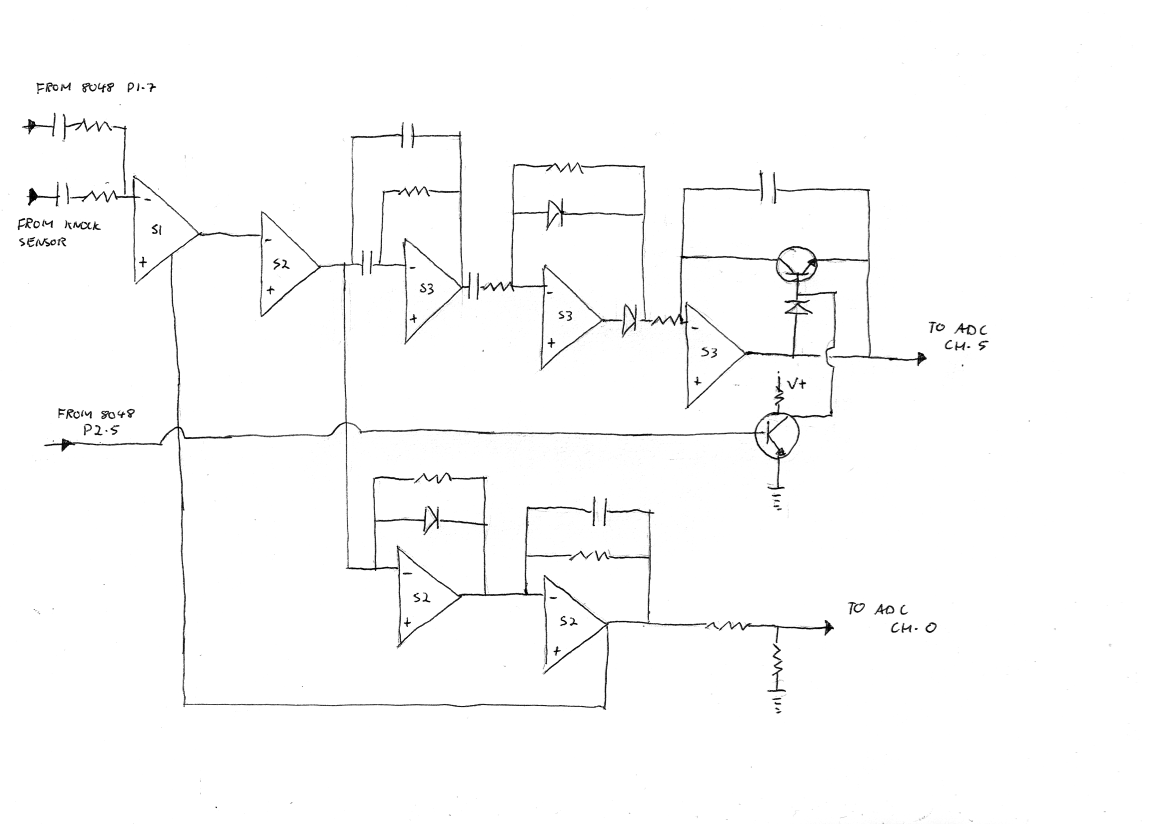 FROM 8048 P1-7
FROM KNOCK
SENSOR
-
S1
+
-
S2
+
-
S3
+
-
S3
+
-
S3
+
TO ADC
CH-5
V+
FROM 8048
P2-5
-
S2
+
-
S2
+
TO ADC
CH-0